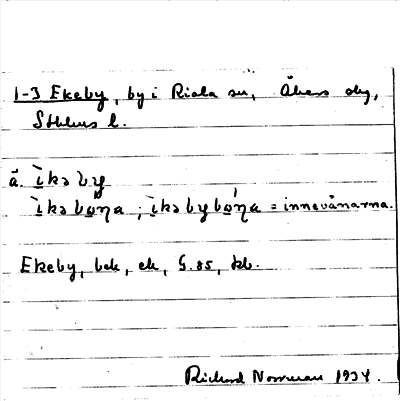 1-3 Ekeby, by i Riala sn, Åkers skg,
Sthlms l.
ä. ìkəby
ìkəbo̲ŋa ; ìkəbybo̲ŋa = innevånarna.
Ekeby, bck, ek, G.85, kb.
Richard Norrman 1934.